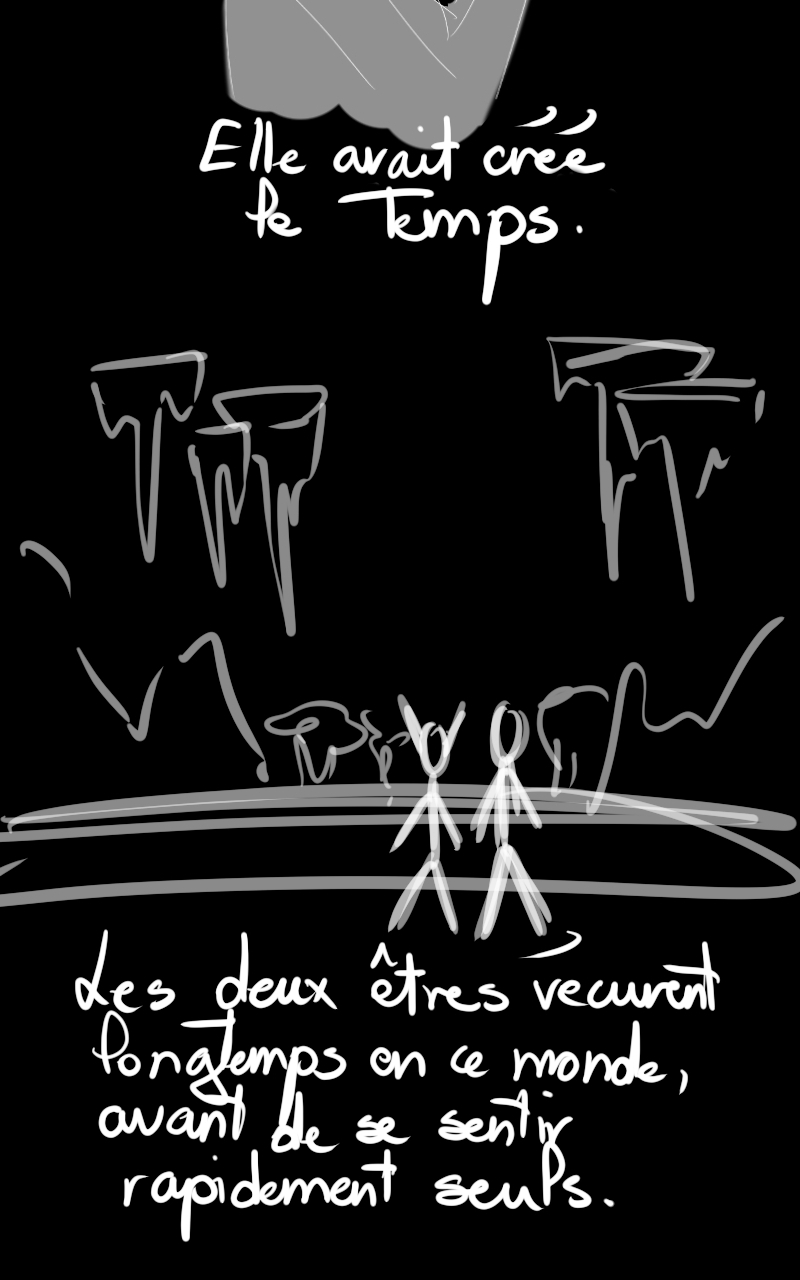 Elle avait créé
le Temps.
Les deux êtres vécurent
longtemps en ce monde,
avant de se sentir
rapidement seuls.